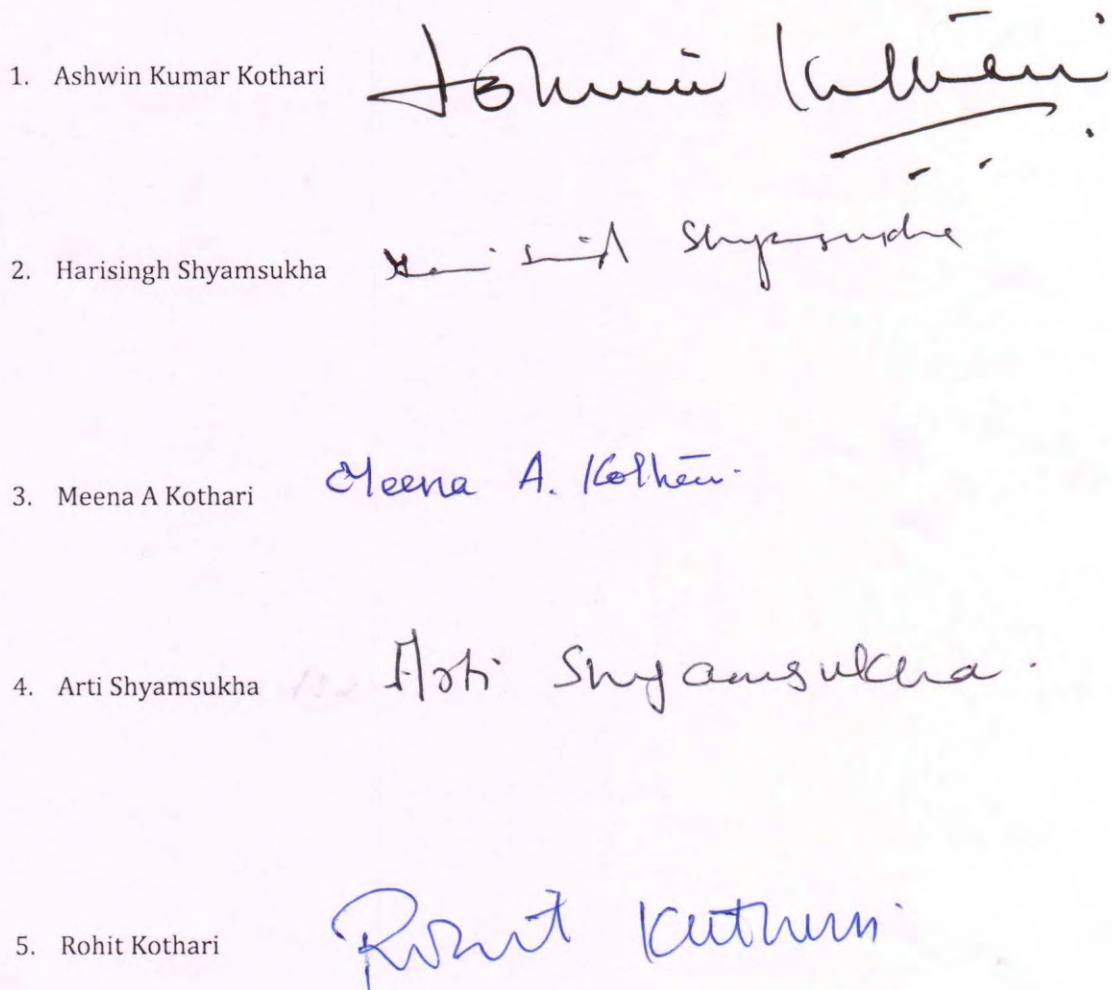 1. Ashwin Kumar Kothari Ashwin Kothari
2. Harisingh Shyamsukha Hari Singh Shyamsukha
3. Meena A Kothari Meena A. Kothari
4. Arti Shyamsukha Arti Shyamsukha.
5. Rohit Kothari Rohit Kothari